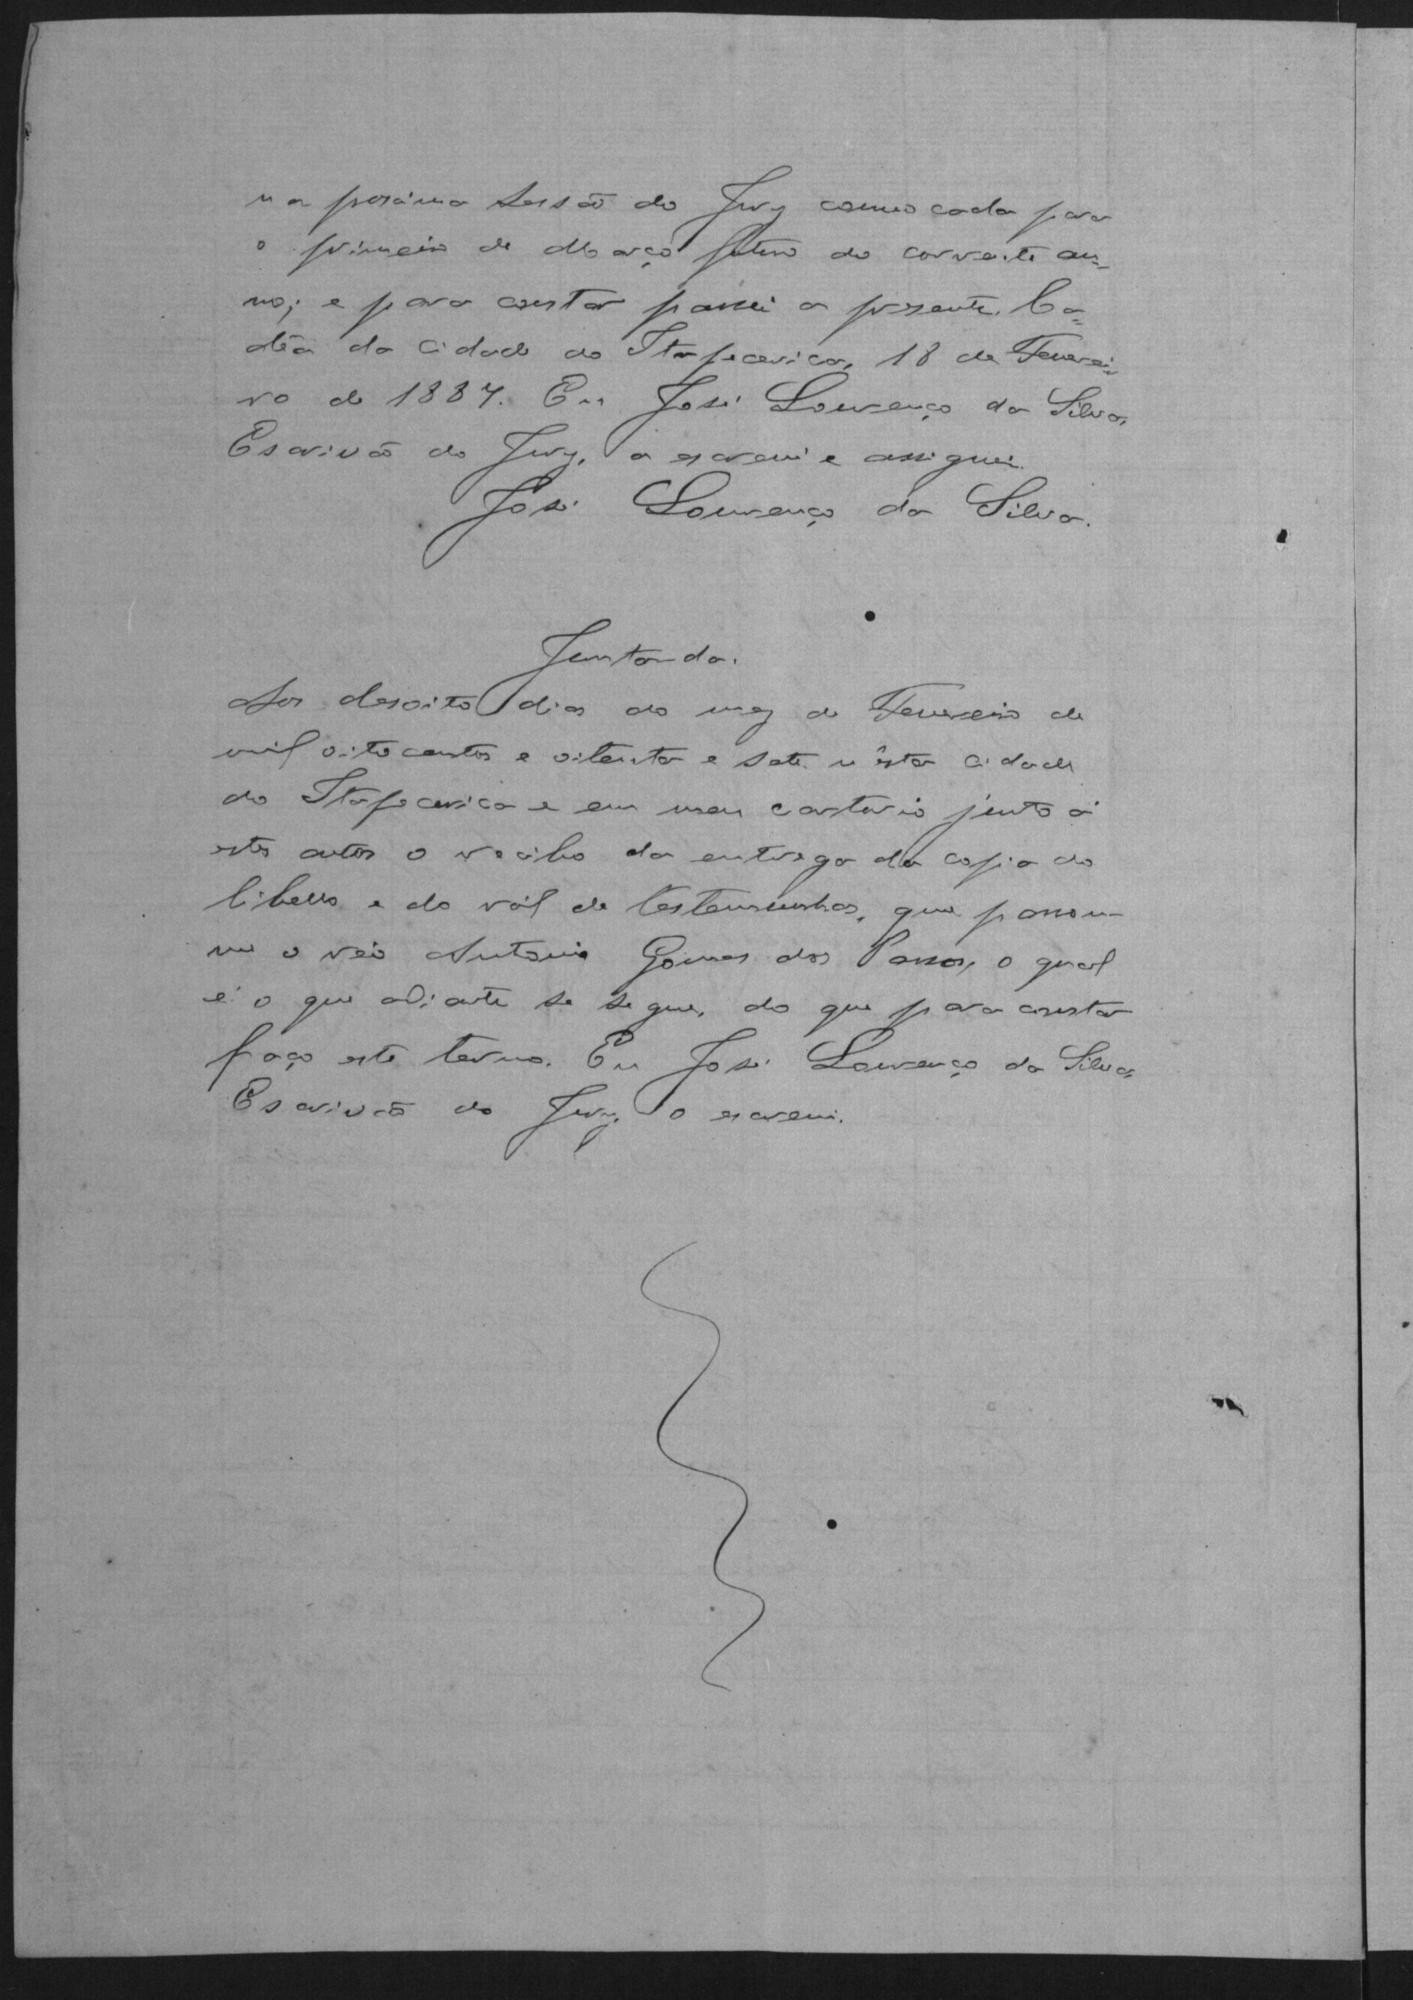 na proxima Sessão do Jury convocada para
o primeiro de Março futuro do corrente an=
no; e para constar passei a presente. Ca=
dêa da Cidade do Itapecerica, 18 de Feverei=
ro de 1887. Eu José Lourenço da Silva,
Escrivão do Jury, a escrevi e assignei.
José Lourenço da Silva.
Juntada.
Aos desoito dias do mez de Fevereiro de
mil oitocentos e oitenta e sete n'esta cidade
do Itapecerica e em meu cartorio junto á
estes autos o recibo da entrega da copia do
libello e do ról de testemunhas, que passou-
me o reo Antonio Gomes dos Passos, o qual
é o que adiante se segue, do que para constar
faço este termo. Eu José Lourenço da Silva,
Escrivão do Jury, o escrevi.